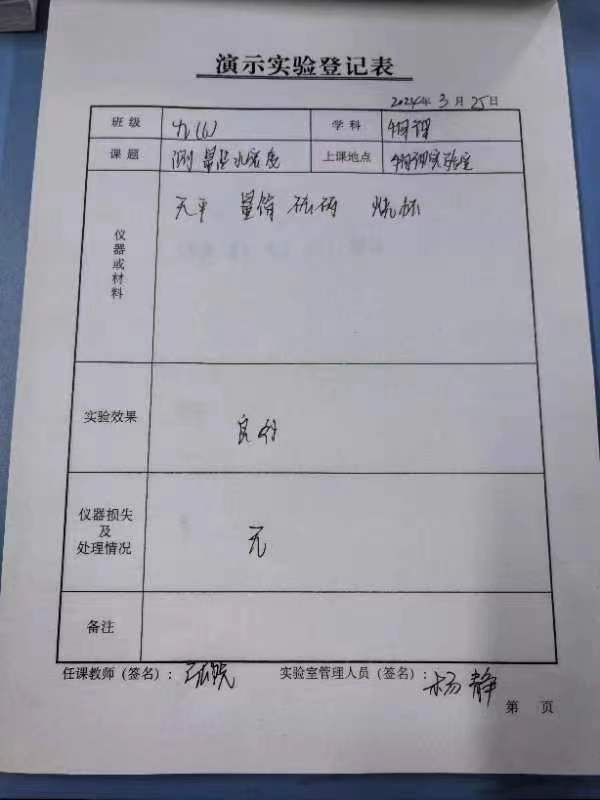 演示实验登记表
2024年3月25日
班级 九(6) 学科 物理
课题 测量盐水密度 上课地点 物理实验室
仪器或材料 天平 量筒 砝码 烧杯
实验效果 良好
仪器损失及处理情况 无
备注
任课教师(签名): 实验室管理人员(签名): 杨静
第 页